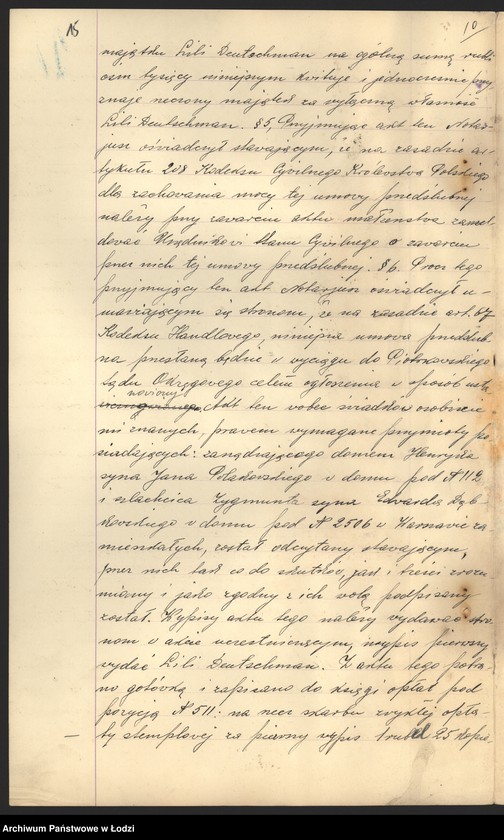 15
10
majątku Lili Deutschman na ogólną sumę rubli
osm tysięcy niniejszym kwituje i jednocześnie przy
znaje rzeczony majątek za wyłączną własność
Lili Deutschman. § 5, Przyjmując akt ten Notar-
jusz oświadczył stawającym, że na zasadzie ar-
tykułu 208 Kodeksu Cywilnego Królewstwa Polskiego
dla zachowania mocy tej umowy przedślubnej
należy przy zawarciu aktu małżeństwa zamel
dować Urzędnikowi Stanu Cywilnego o zawarciu
przez nich tej umowy przedślubnej. § 6. Procz tego
przyjmujący ten akt Notarjusz oświadczył u-
mawiającym się stronom, że na zasadzie art. 67
Kodeksu Handlowego, niniejsza umowa przedślub
na przesłaną będzie w wyciągu do Piotrkowskiego
Sądu Okręgowego celem ogłoszenia w sposób usta
nowiony
Akt ten wobec świadków osobiście
mi znanych, prawem wymagane przymioty po
siadających: zarządzającego domem Henryka
syna Jana Polakowskiego w domu pod N 112
i szlachcica Zygmunta syna Edwarda Dąb
kowskiego w domu pod N 2506 w Warszawie za
mieszkałych, został odczytany stawającym,
przez nich tak co do skutków, jak i treści zrozu
miany i jako zgodny z ich wolą podpisany
został. Wypisy aktu tego należy wydawać stro
nom w akcie uczestniczącym, wypis pierwszy
wydać Lili Deutschman. Z aktu tego pobra
no gotówką i zapisano do księgi opłat pod
pozycją N 511: na rzecz skarbu zwykłej opła
ty stemplowej za pierwszy wypis 1 rubel 25 kopie
Archiwum Państwowe w Łodzi